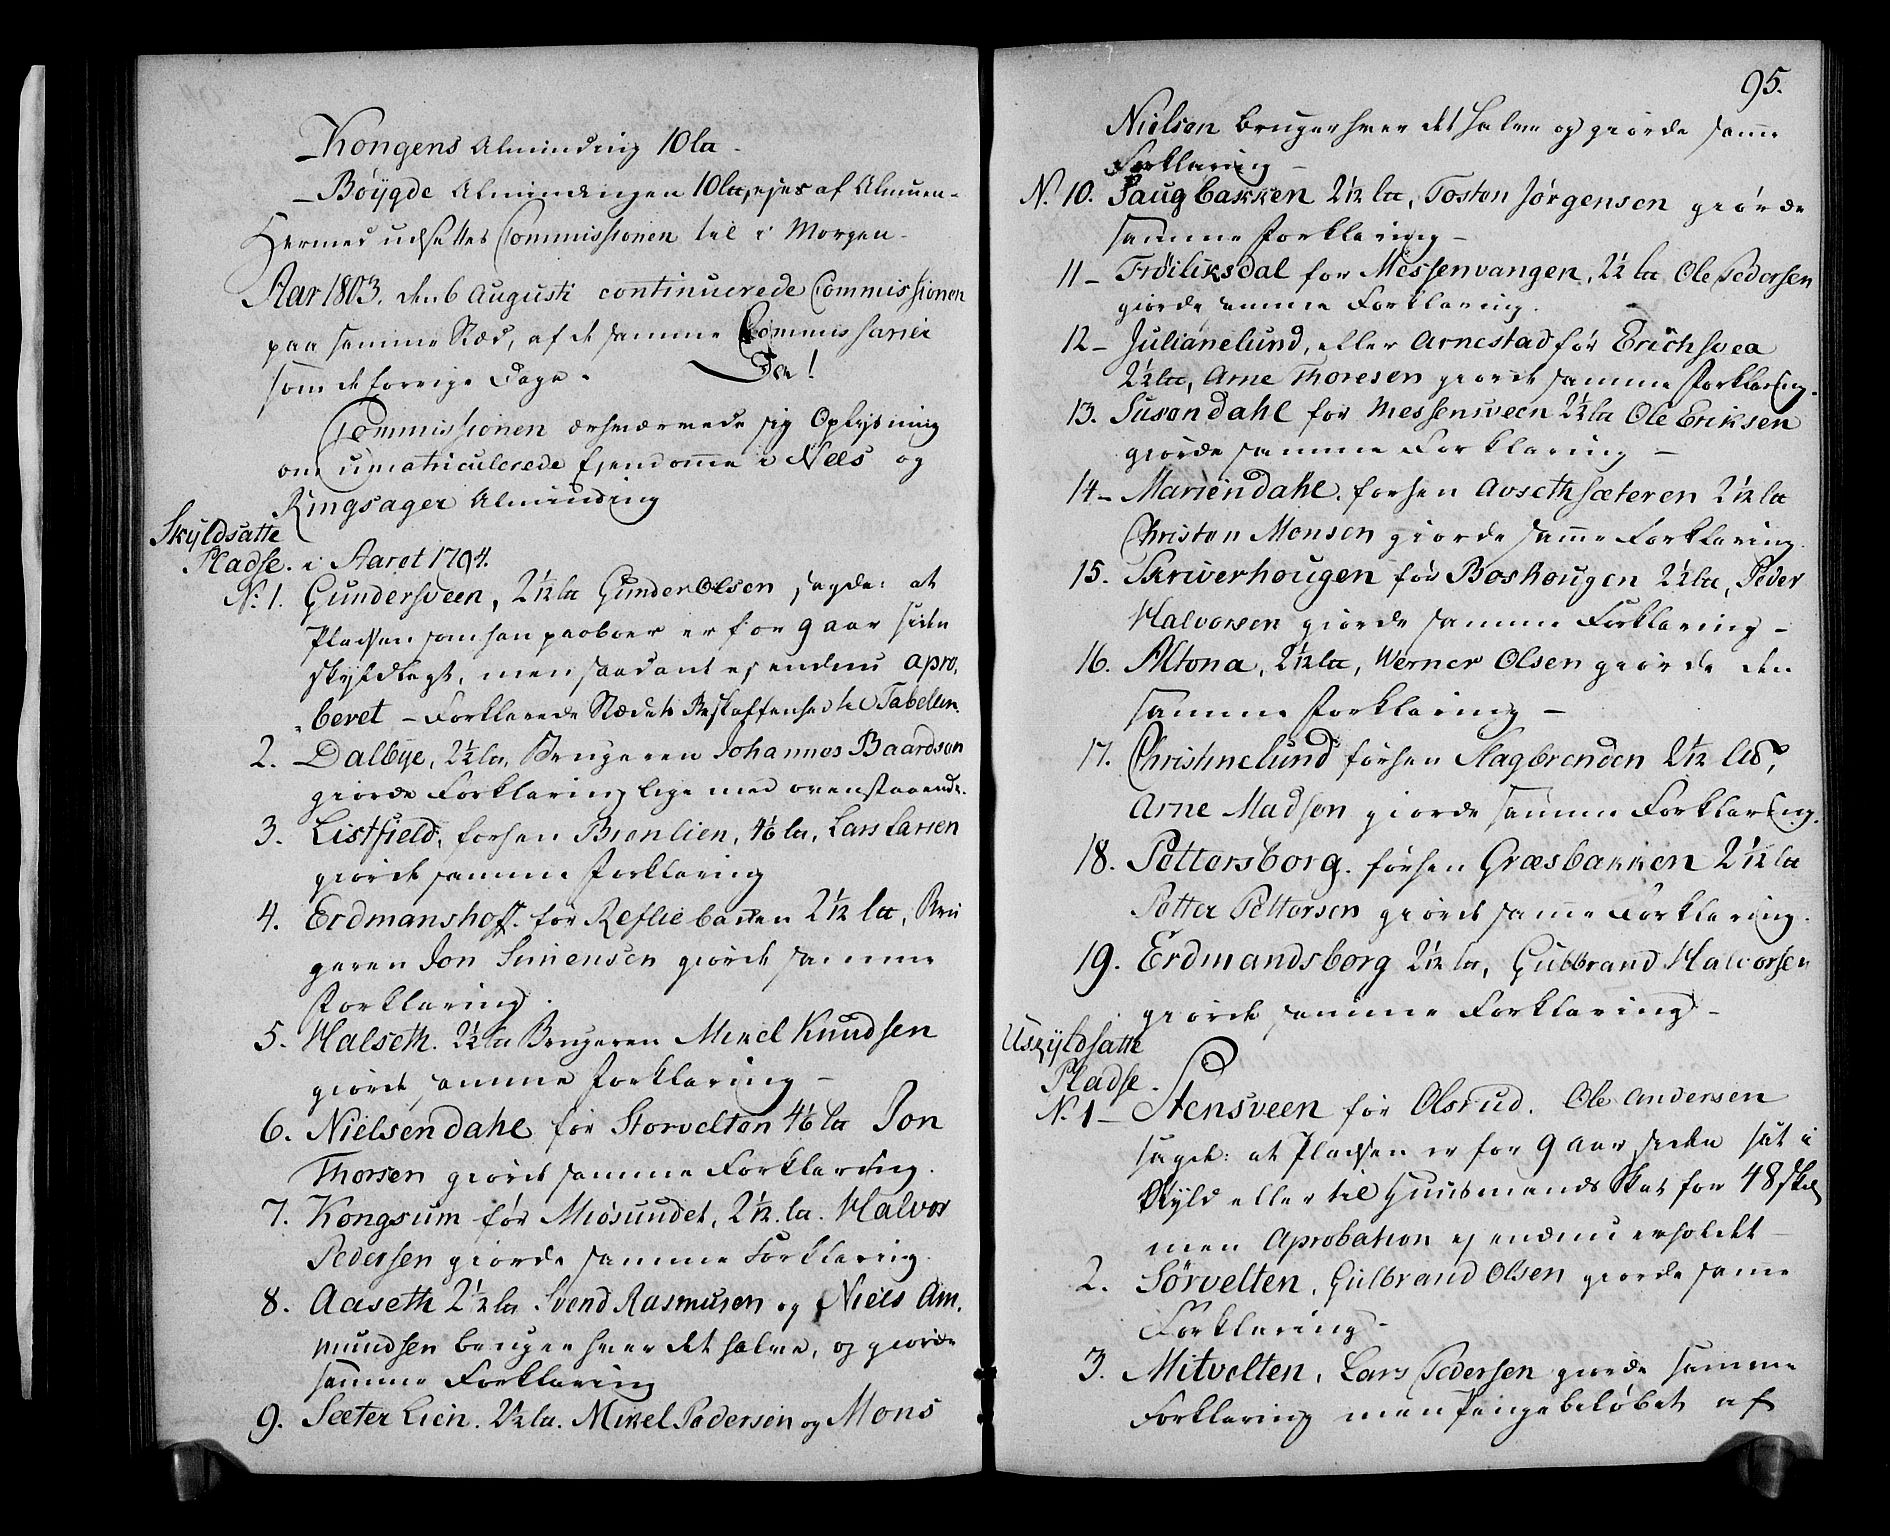 Kongens Alminding 10 la -
- Böygde Almindingen 10 la, ejes af Almuen -
Hermed udsettes Commissionen til i Morgen -
Aar 1803. den 6 Augusti continuerede Commissionen
paa samme Stæd, af de samme Commissarier
som de forrige Dage. Da!
Commissionen erhværvede sig Oplysning
om umatriculerede Ejendomme i Nees og
Ringsager Alminding
Skyldsatte
Pladse. i Aaret 1794.
N. 1. Gundersveen, 2 1/2 la Gunder Olsen sagde: at
Pladsen som han paaboer er for 9 aar siden
skyldlagt, men saadant ej endnu apro,
beret - Forklarede Stædets Beskaffenhed til Tabellen.
2. Dalbye, 2 1/2 la, Brugeren Johannes Baardsen
giorde Forklaring lige med ovenstaaende.
3. Listfield, forhen Brenlien, 4/6 la, Lars Larsen
giorde samme Forklaring
4. Erdmanshoff. for Reflie bakken 2 1/2 la, Bru
geren Jon Simensen giorde samme
Forklaring.
5. Halseth. 2 1/2 la Brugeren Mikel Knudsen
giorde samme Forklaring -
6. Nielsendahl för Storvelten 4/6 la Jon
Thorsen giorde samme Forklaring.
7. Kongsum för Miösundet, 2 1/2. la. Halvor
Pedersen giorde samme Forklaring.
8. Aaseth 2 1/2 la Svend Rasmusen og Niels Am,
mundsen bruger hver det halve, og giorde
samme Forklaring
9. Sæter Lien. 2 1/2 la. Mikel Pedersen og Mons
95.
Nielsen bruger hver det halve og giorde samme
Forklaring -
N. 10. Haugbakken 2 1/2 la, Tosten Jörgensen giorde
samme Forklaring -
11 - Fröiliksdal for Messenvangen, 2 1/2 la Ole Pedersen
giorde samme Forklaring.
12 - Julianelund, eller Arnestad för Erichsvea
2 1/2 la, Arne Thoresen giorde samme Forklaring.
13. Susandahl for Messensveen 2 1/2 la Ole Eriksen
giorde samme Forklaring -
14 - Mariendahl, forhen Avsethsæteren 2 1/2 la
Christen Monsen giorde samme Forklaring.
15. Skriverhougen för Boshougen 2 1/2 la, Peder
Halvorsen giorde samme Forklaring -
16. Altona, 2 1/2 la, Werner Olsen giorde den
samme Forklaring -
17. Christinelund forhen Slagbrenden 2 1/2 la,
Arne Madsen giorde samme Forklaring.
18. Pettersborg. forhen Græsbakken 2 1/2 la
Petter Pettersen giorde samme Forklaring.
19. Erdmandsborg 2 1/2 la, Gulbrand Halvorsen
giorde samme Forklaring -
Uskyldsatte
Pladse.
N. 1 - Stensveen för Olsrud. Ole Andersen
sagde: at Pladsen er for 9 aar siden sat i
Skyld eller til Huusmands Skat for 48 skil
men Aprobation ej endnu erholdet -
2. Sörvelten, Gulbrand Olsen giorde samme
Forklaring -
3. Mitvelten, Lars Pedersen giorde samme
Forklaring men pengebelöbet af